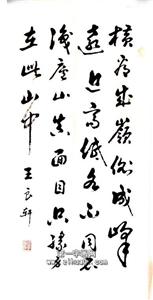 横看成岭侧成峰
远近高低各不同不识
庐山真面目只缘身
在此山中
王良轩